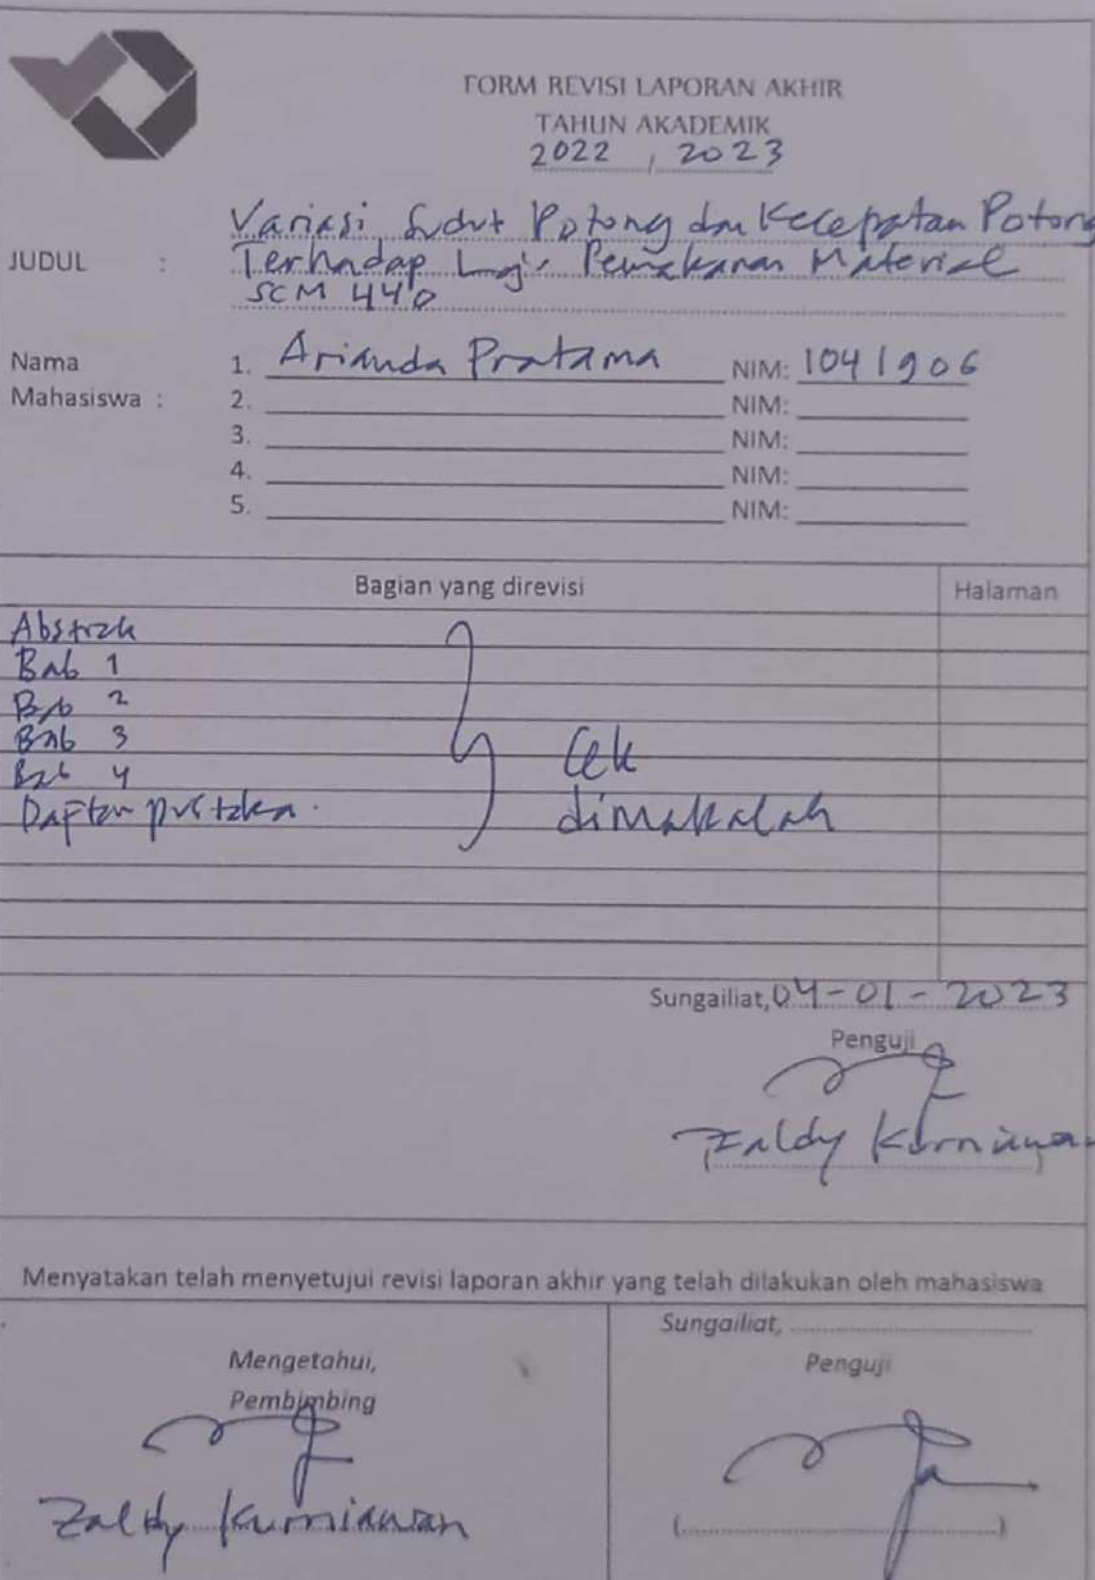 FORM REVISI LAPORAN AKHIR
TAHUN AKADEMIK
2022 / 2023
JUDUL : Variasi Sudut Potong dan Kecepatan Potong
Terhadap Laju Pemakanan Material
SCM 440
Nama
Mahasiswa :
1. Arianda Pratama NIM: 1041906
2. NIM:
3. NIM:
4. NIM:
5. NIM:
Bagian yang direvisi Halaman
Abstrak
Bab 1
Bab 2
Bab 3
Bab 4 Cek
Daftar pustaka. dimakalah
Sungailiat, 04-01-2023
Penguji
Zaldy Kurniawan
Menyatakan telah menyetujui revisi laporan akhir yang telah dilakukan oleh mahasiswa
Mengetahui,
Pembimbing
Zaldy Kurniawan
Sungailiat, ........................
Penguji
(........................)